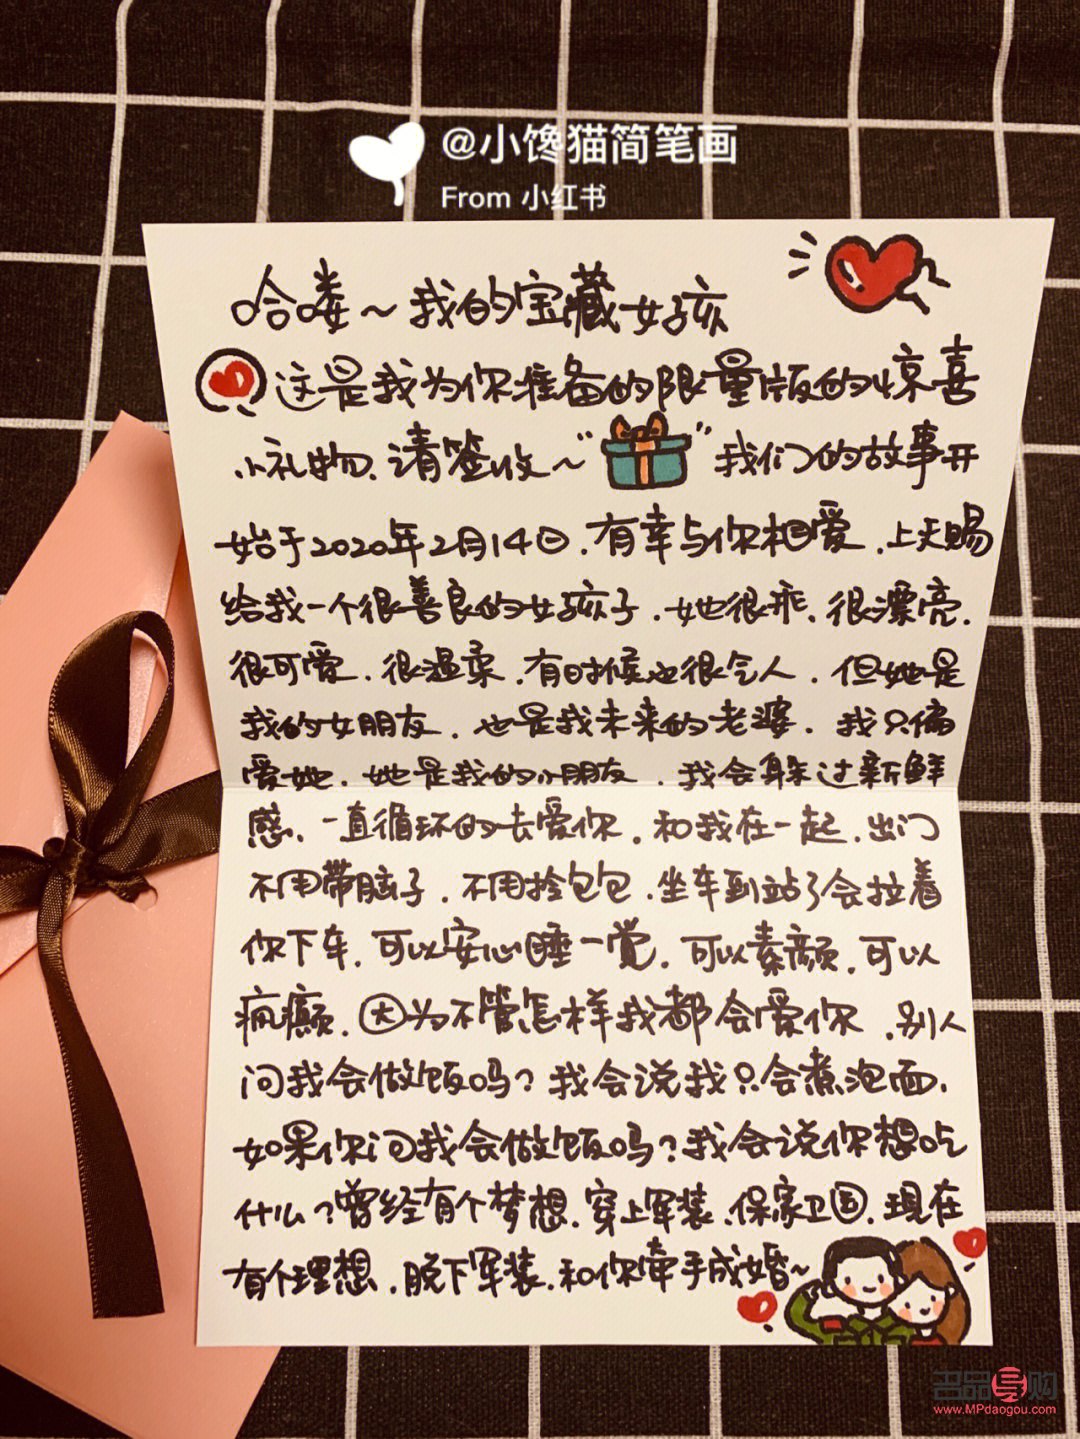 @小馋猫简笔画
From 小红书
哈喽~我的宝藏女孩
这是我为你准备的限量版的惊喜
小礼物、请签收~“ ”我们的故事开
始于2020年2月14日.有幸与你相爱.上天赐
给我一个很善良的女孩子.她很乖、很漂亮.
很可爱.很温柔.有时候也很气人.但她是
我的女朋友.也是我未来的老婆.我只偏
爱她.她是我的小朋友.我会躲过新鲜
感、一直循环的去爱你.和我在一起.出门
不用带脑子.不用拎包包.坐车到站了会拉着
你下车.可以安心睡一觉.可以素颜.可以
疯癫.因为不管怎样我都会爱你.别人
问我会做饭吗?我会说我只会煮泡面.
如果你问我会做饭吗?我会说你想吃
什么?曾经有个梦想.穿上军装.保家卫国.现在
有个理想.脱下军装.和你牵手成婚~
名品导购
www.MPdaogou.com